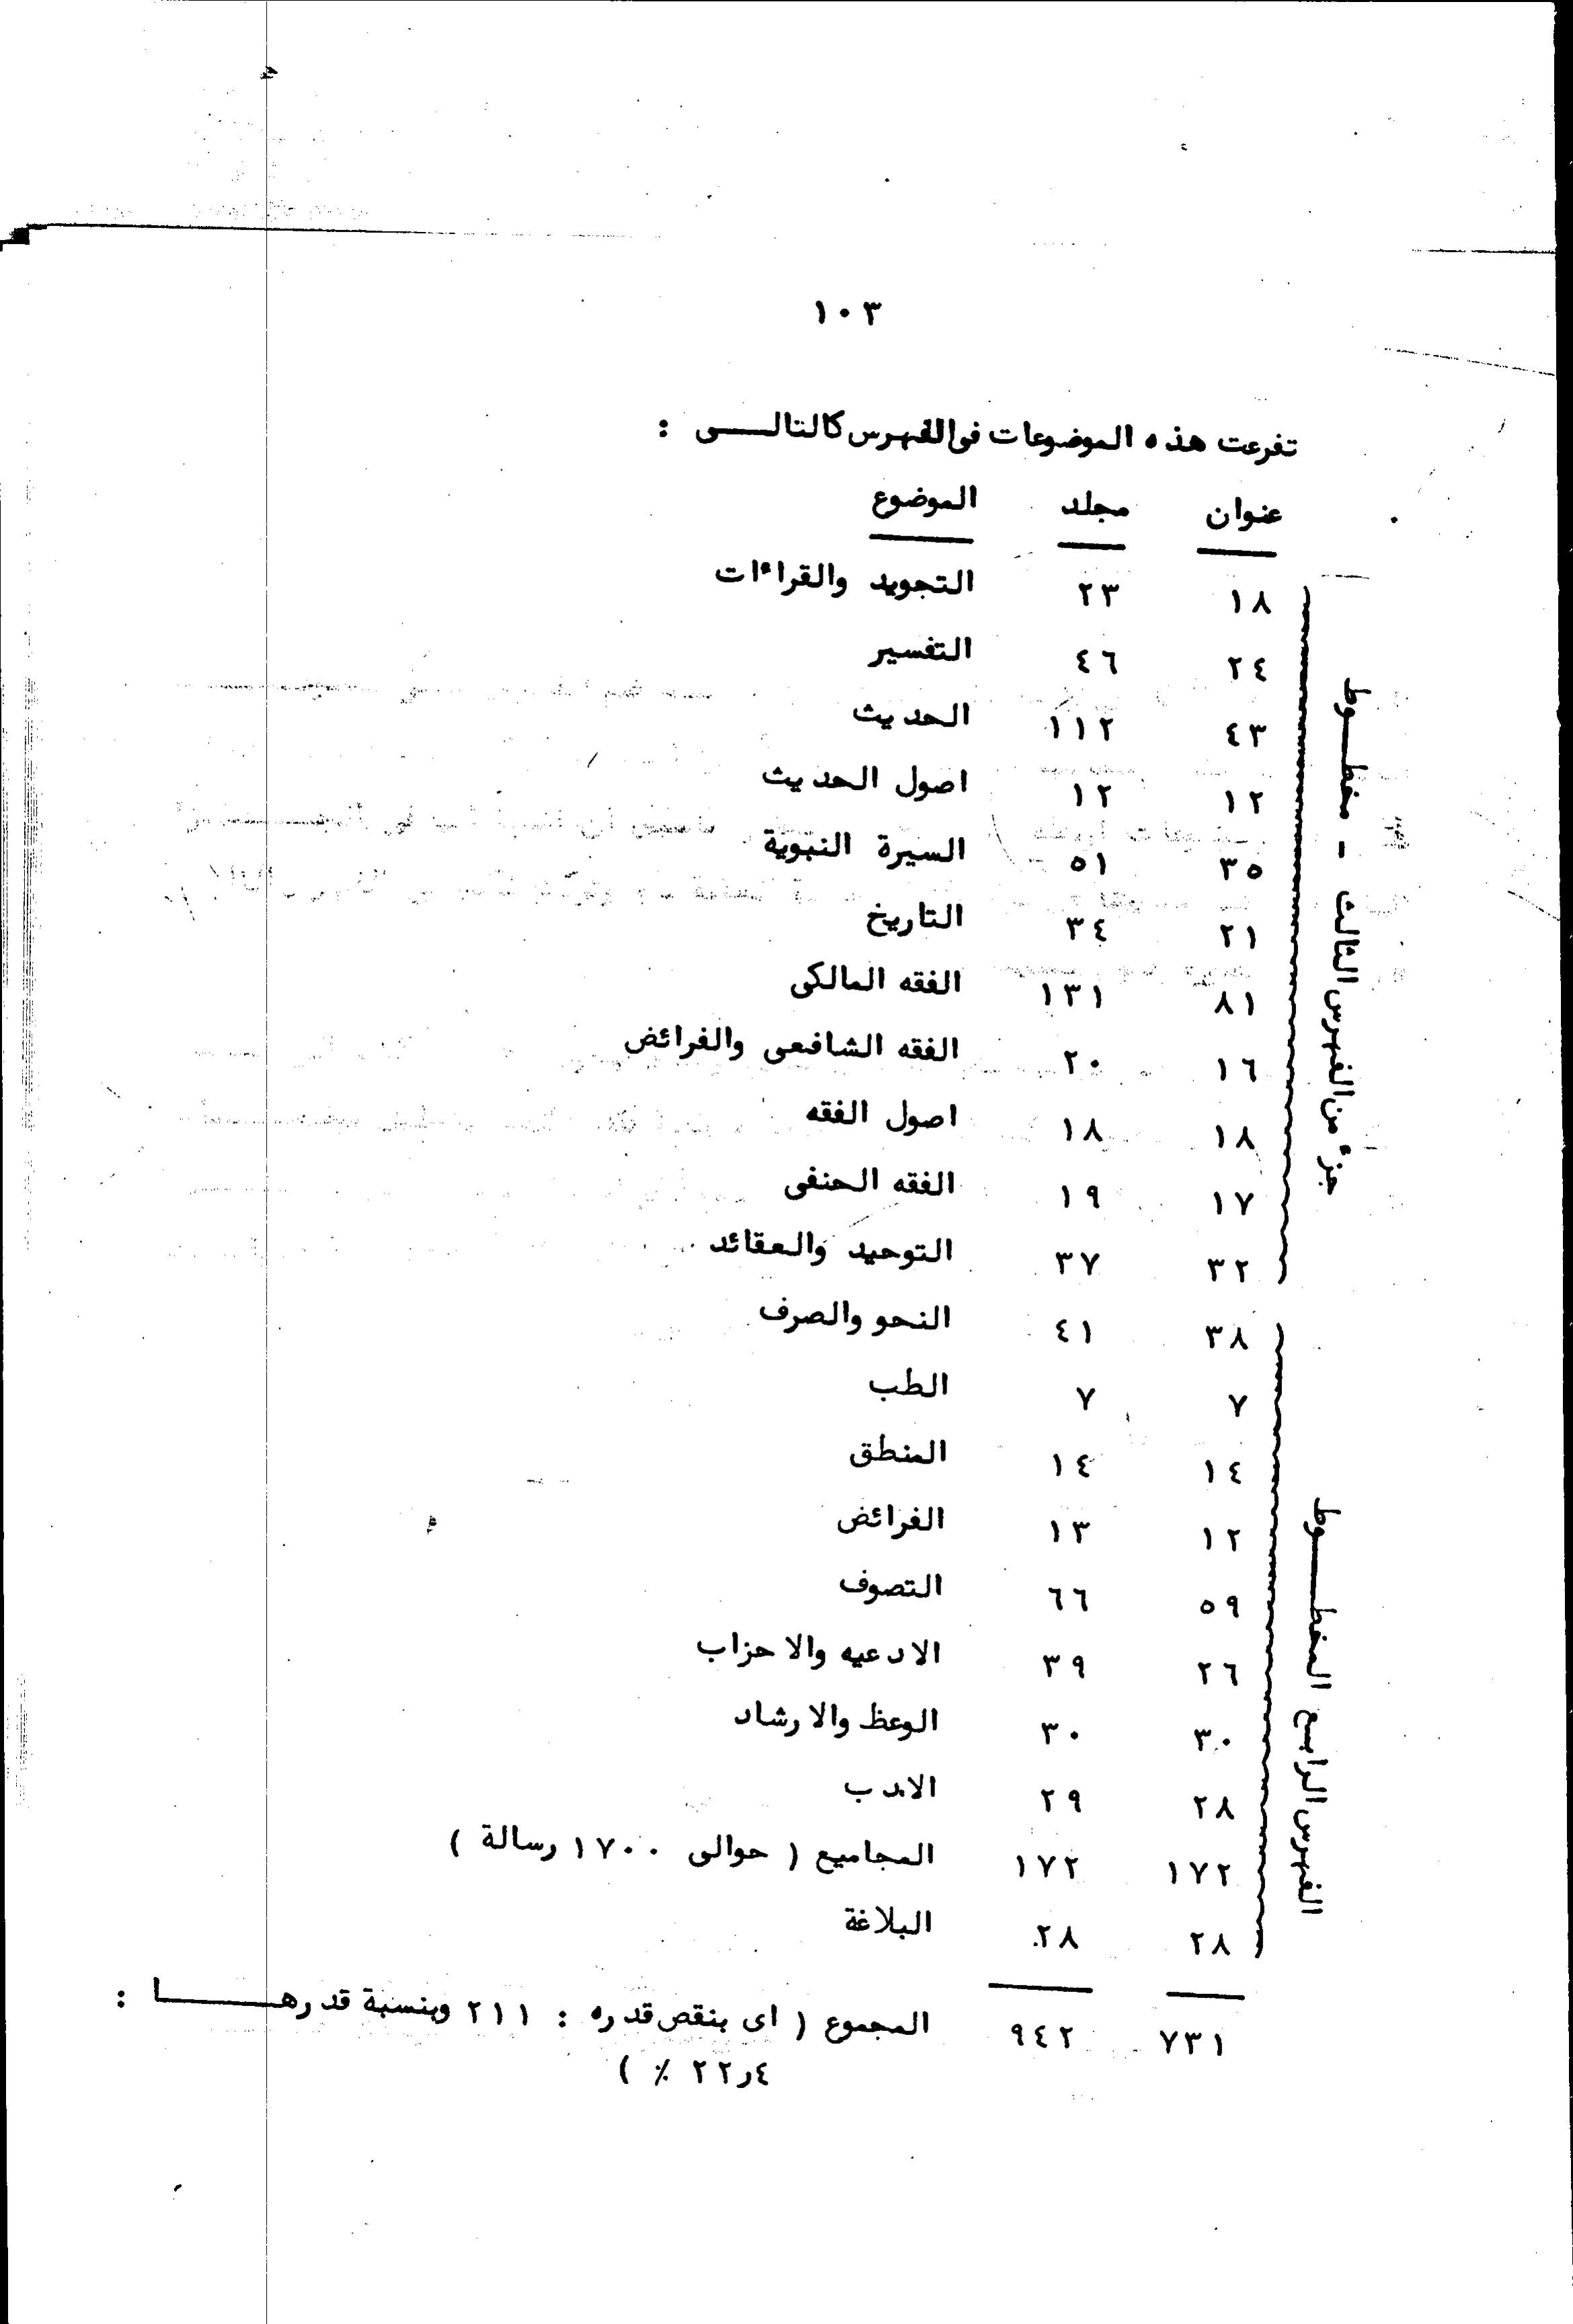 ١٠٣
تفرعت هذه الموضوعات فى الفهرس كالتالـــى :
عنوان مجلد الموضوع
١٨ ٢٣ التجويد والقراءات
٢٤ ٤٦ التفسير
٤٣ ١١٢ الحديث
١٢ ١٢ اصول الحديث
٣٥ ٥١ السيرة النبوية
٢١ ٣٤ التاريخ
٨١ ١٣١ الفقه المالكى
١٦ ٢٠ الفقه الشافعى والفرائض
١٨ ١٨ اصول الفقه
١٧ ١٩ الفقه الحنفى
٣٢ ٣٧ التوحيد والعقائد
جزء من الفهرس الثالث - مخطــوط
٣٨ ٤١ النحو والصرف
٧ ٧ الطب
١٤ ١٤ المنطق
١٢ ١٣ الفرائض
٥٩ ٦٦ التصوف
٢٦ ٣٩ الادعيه والاحزاب
٣٠ ٣٠ الوعظ والارشاد
٢٨ ٢٩ الادب
١٧٢ ١٧٢ المجاميع ( حوالى ١٧٠٠ رسالة )
٢٨ ٢٨ البلاغة
الفهرس الرابع المخطــــوط
٧٣١ ٩٤٢ المجموع ( اى بنقص قدره : ٢١١ وبنسبة قدرهــــــا :
٤ر٢٢ ٪ )